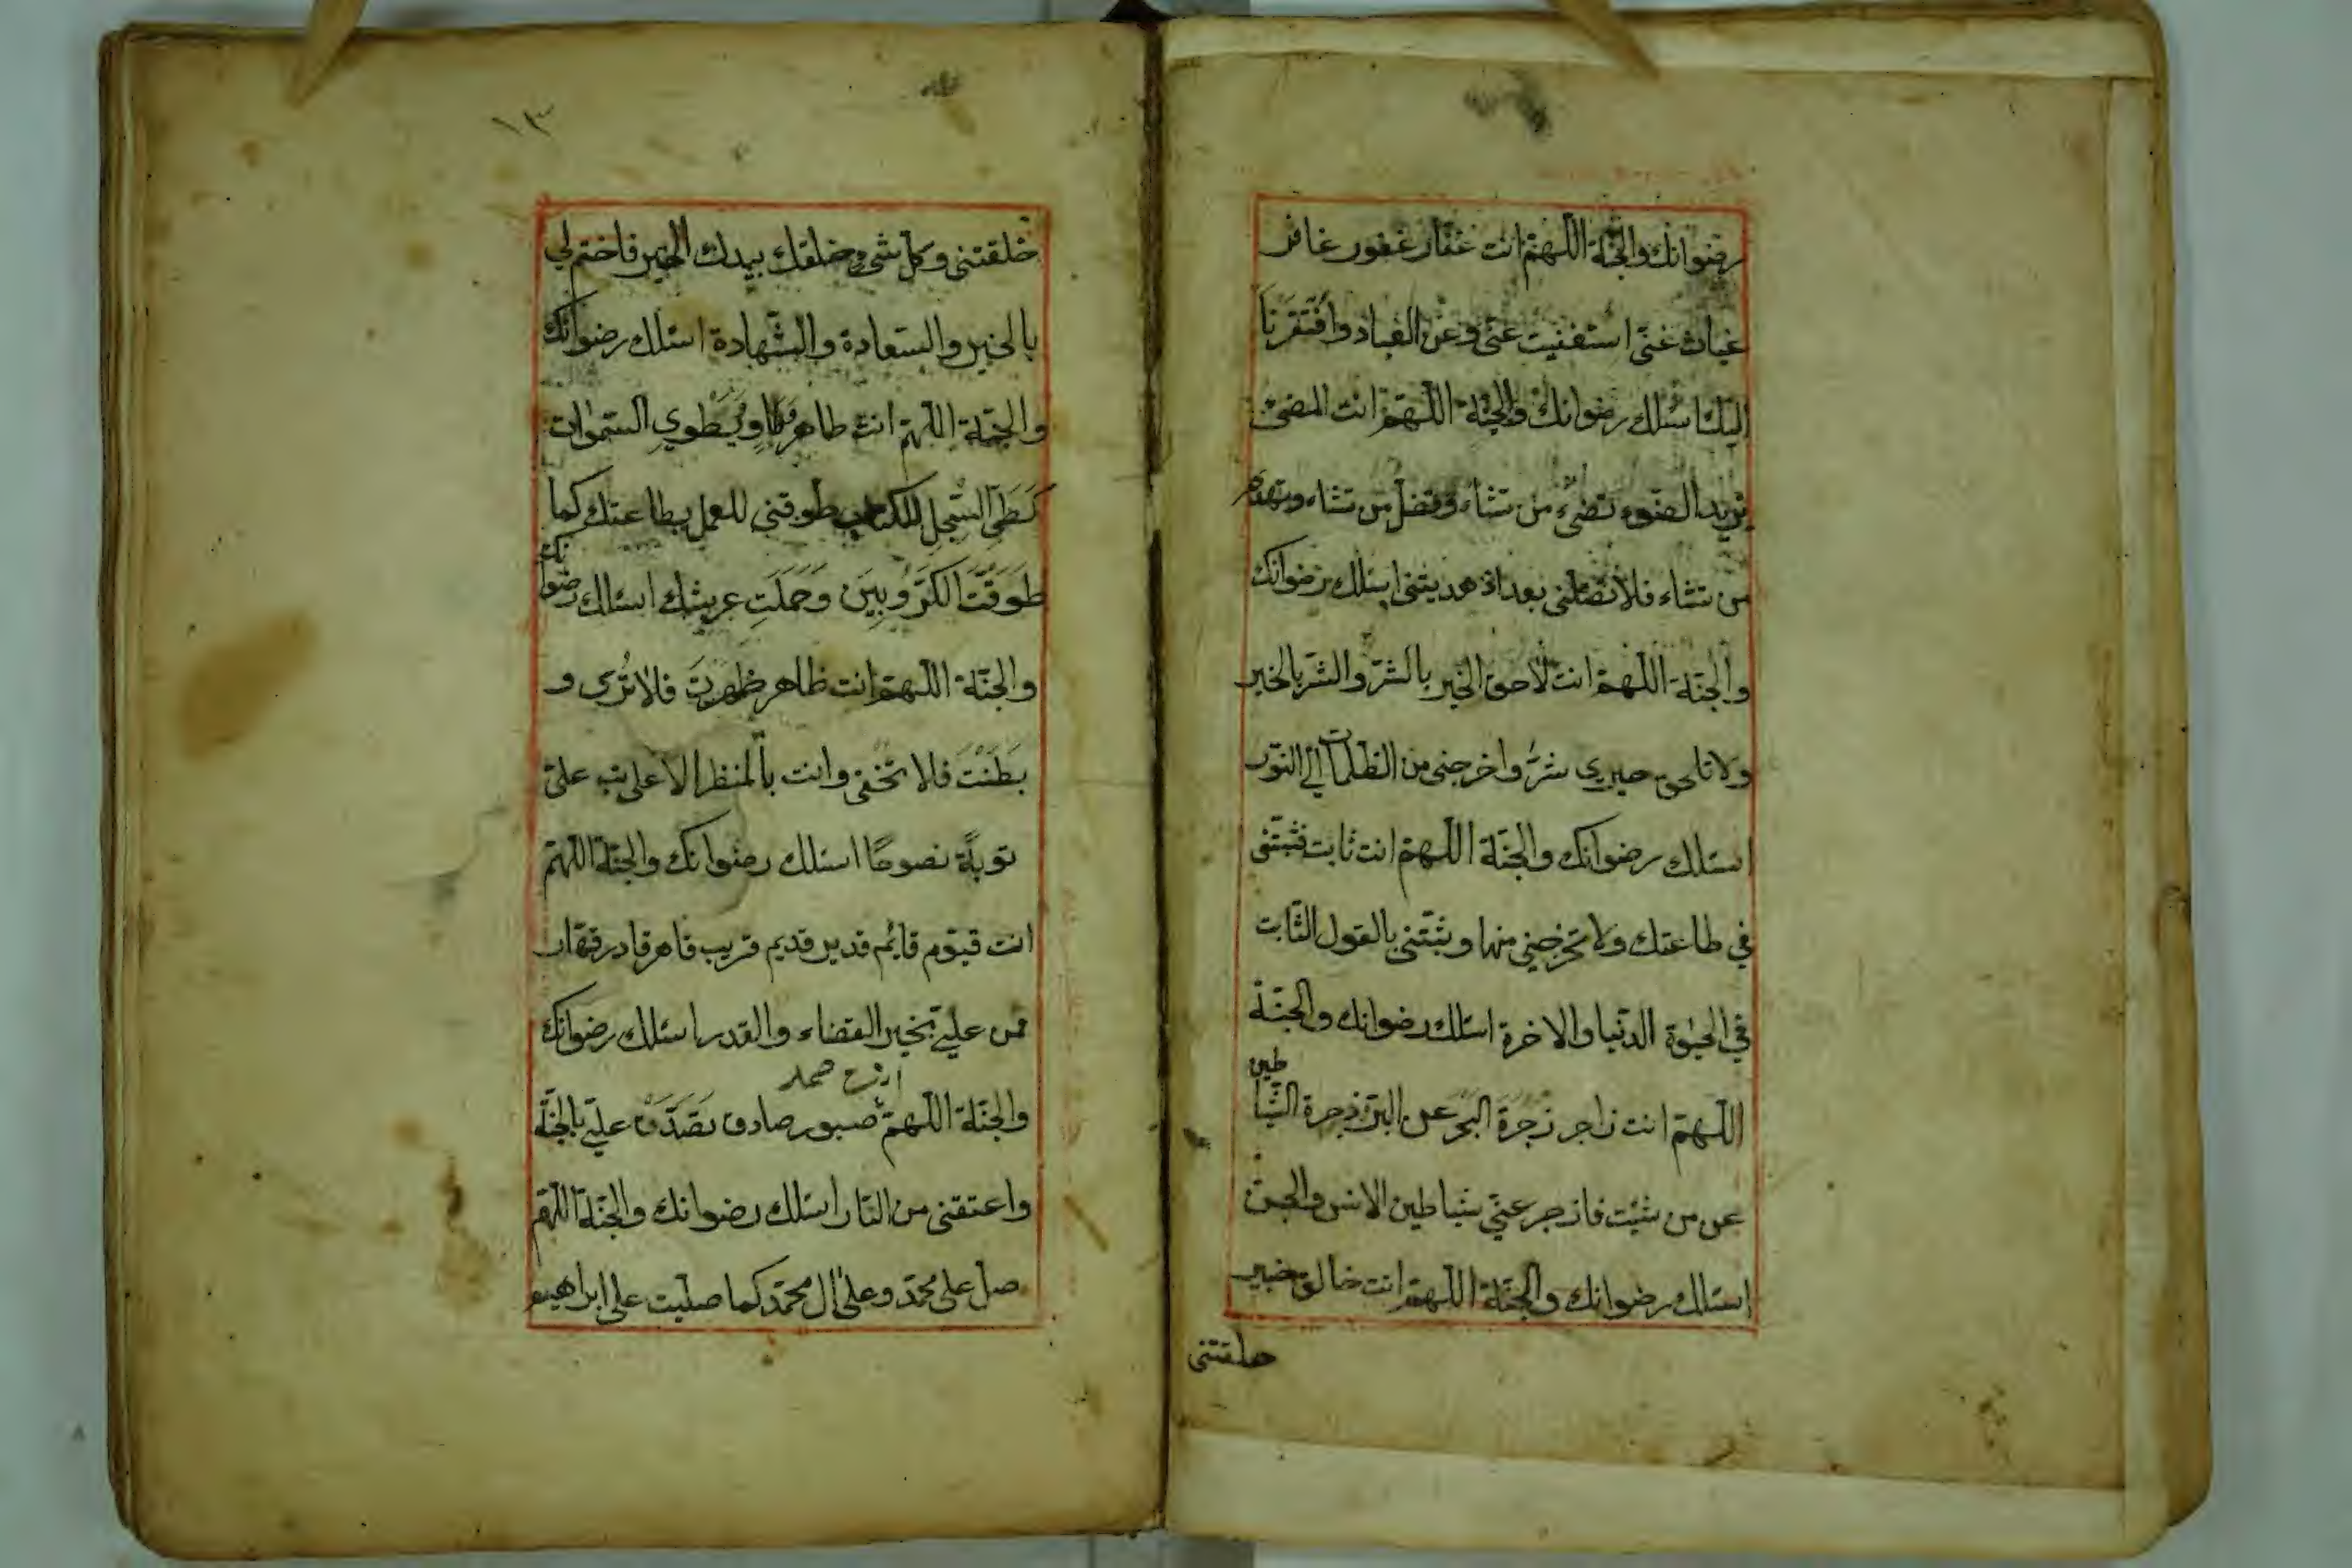 رضوانك والجنّة اللّهمّ انت غفّار غفور غافر
غياث غنىّ استغنيت عنّى وعن العباد وافتقرنا
اليك اسئلك رضوانك والجنّة اللّهمّ انت المضىء
تريد الضّوء تضىء من تشاء وتضل من تشاء وتهدى
من تشاء فلا تضلّنى بعد اذ هديتنى اسئلك رضوانك
والجنّة اللّهمّ انت لاحق الخير بالشرّ والشر بالخير
ولا تلحق خيرى شرّ واخرجنى من الظلمات الى النّور
اسئلك رضوانك والجنّة اللّهمّ انت ثابت فثبّتنى
في طاعتك ولا تخرجنى منها وثبّتنى بالقول الثّابت
في الحيوة الدّنيا والاخرة اسئلك رضوانك والجنّة
اللّهمّ انت زاجر زجرة البحر عن البرّ زجرة الشّياطين
عن من شئت فازجر عنّي شياطين الانس والجنّ
اسئلك رضوانك والجنّة اللّهمّ انت خالق خبير
خلقتنى
١٣
خلقتنى وكلّ شىء خلقك بيدك الخير فاختم لي
بالخير والسّعادة والشّهادة اسئلك رضوانك
والجنّة اللّهمّ انت طاهر يطوي السّموات
كطىّ السّجل للكتاب طوقنى للعمل بطاعتك كما
طَوَقْتَ الكَرّوُبِينَ وَحَمَلَتِ عرشك اسئلك رضوانك
والجنّة اللّهمّ انت ظاهر ظهرت فلا تُرى و
بَطَنْتَ فلا تخفى وانت بالمنظر الاعلى تب علىّ
توبةً نصوحًا اسئلك رضوانك والجنّة اللّهمّ
انت قيّوم قائم قدير قديم قريب قاهر قادر قهّار
فمن علىّ بخير القضاء والقدر اسئلك رضوانك
والجنّة اللّهمّ انت صمد صبور صادق تَصَدَّقْ علىّ بالجنّة
واعتقنى من النّار اسئلك رضوانك والجنّة اللّهمّ
صلّ على محمّد وعلى ال محمّد كما صلّيت على ابراهيم